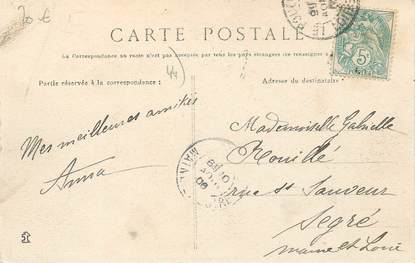 20 €
CARTE POSTALE
La Correspondance au recto n'est pas acceptée par tous les pays étrangers
44
Partie réservée à la correspondance
Adresse du destinataire
5
Mes meilleures amitiés
Anna
Mademoiselle Gabrielle
Rouillé
rue St Sauveur
Segré
Maine et Loire